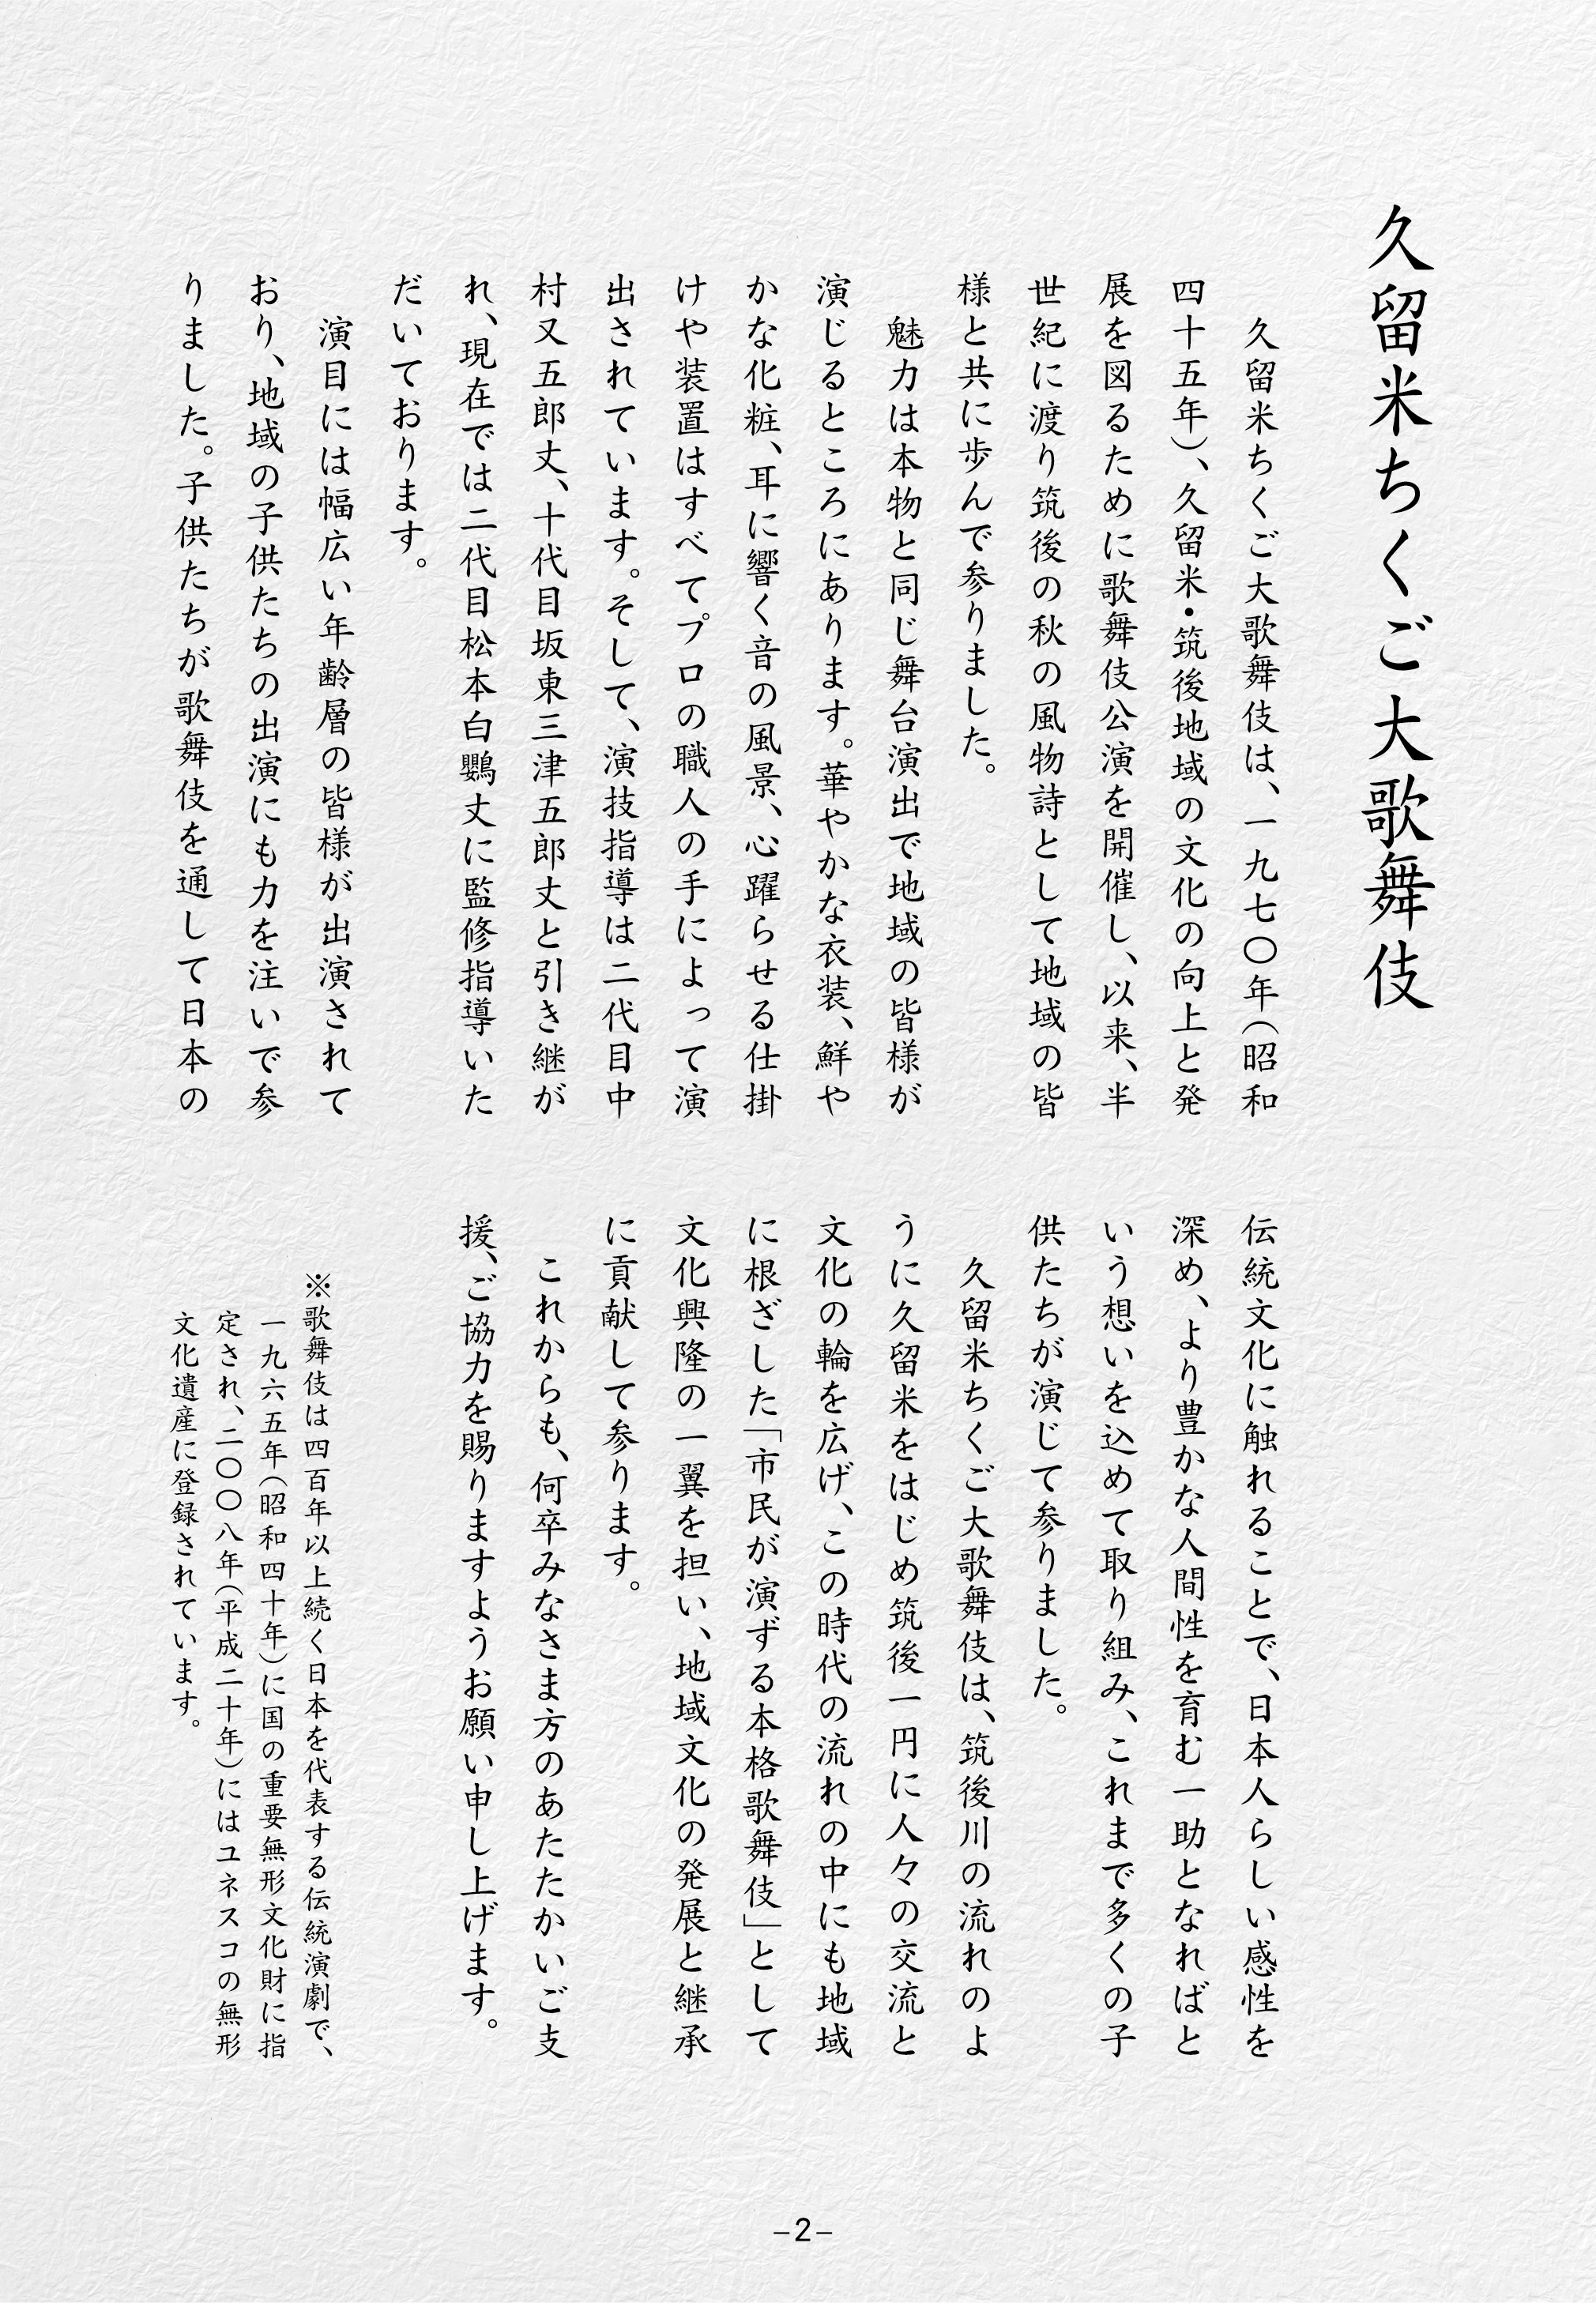 久留米ちくご大歌舞伎
久留米ちくご大歌舞伎は、一九七〇年（昭和
四十五年）、久留米・筑後地域の文化の向上と発
展を図るために歌舞伎公演を開催し、以来、半
世紀に渡り筑後の秋の風物詩として地域の皆
様と共に歩んで参りました。
魅力は本物と同じ舞台演出で地域の皆様が
演じるところにあります。華やかな衣装、鮮や
かな化粧、耳に響く音の風景、心躍らせる仕掛
けや装置はすべてプロの職人の手によって演
出されています。そして、演技指導は二代目中
村又五郎丈、十代目坂東三津五郎丈と引き継が
れ、現在では二代目松本白鸚丈に監修指導いた
だいております。
演目には幅広い年齢層の皆様が出演されて
おり、地域の子供たちの出演にも力を注いで参
りました。子供たちが歌舞伎を通して日本の
伝統文化に触れることで、日本人らしい感性を
深め、より豊かな人間性を育む一助となればと
いう想いを込めて取り組み、これまで多くの子
供たちが演じて参りました。
久留米ちくご大歌舞伎は、筑後川の流れのよ
うに久留米をはじめ筑後一円に人々の交流と
文化の輪を広げ、この時代の流れの中にも地域
に根ざした「市民が演ずる本格歌舞伎」として
文化興隆の一翼を担い、地域文化の発展と継承
に貢献して参ります。
これからも、何卒みなさま方のあたたかいご支
援、ご協力を賜りますようお願い申し上げます。
※歌舞伎は四百年以上続く日本を代表する伝統演劇で、
一九六五年（昭和四十年）に国の重要無形文化財に指
定され、二〇〇八年（平成二十年）にはユネスコの無形
文化遺産に登録されています。
–2–